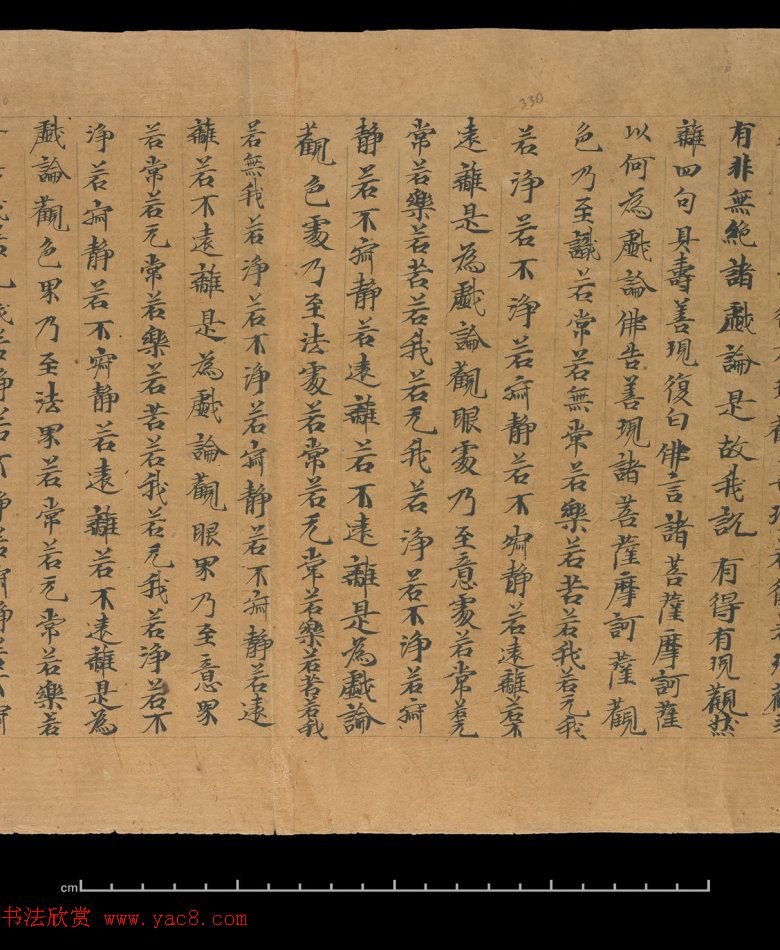 330
有非無絶諸戲論是故我說有得有現觀然
離四句具壽善現復白佛言諸菩薩摩訶薩
以何為戲論佛告善現諸菩薩摩訶薩觀
色乃至識若常若無常若樂若苦若我若无我
若淨若不淨若寂静若不寂静若遠離若不
遠離是為戲論觀眼處乃至意處若常若无
常若樂若苦若我若无我若淨若不淨若寂
静若不寂静若遠離若不遠離是為戲論
觀色處乃至法處若常若无常若樂若苦若我
若無我若淨若不淨若寂静若不寂静若遠
離若不遠離是為戲論觀眼界乃至意界
若常若无常若樂若苦若我若无我若淨若不
淨若寂静若不寂静若遠離若不遠離是為
戲論觀色界乃至法界若常若无常若樂若
cm
书法欣赏 www.yac8.com